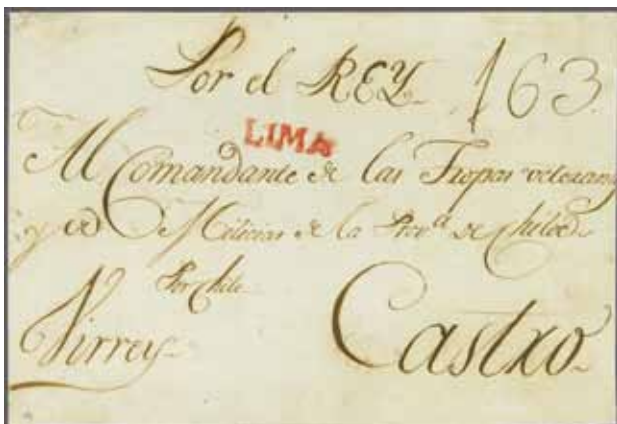 Por el REY 163
LIMA
Al Comandante de las Tropas veteranas
y de Milicias de la Prov.a de Chiloe
Por Chile
Virrey
Castro